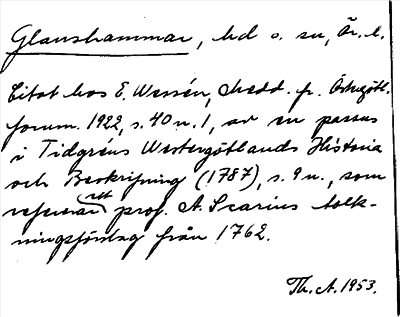 Glanshammar, hd o. sn, Ör. l.
Citat hos E. Wessén, Medd. fr. Östergötl.
fornm. 1922, s. 40 n. 1, av en passus
i Tidgréns Westergötlands Historia
och Beskrifning (1787), s. 9 n., som
refererar ett prof. A. Scarins tolk-
ningsförslag från 1762.
Th. A. 1953.